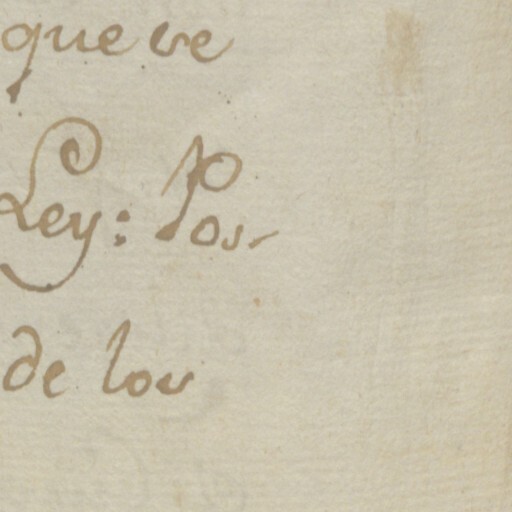 que ve
Ley: Pos-
de los